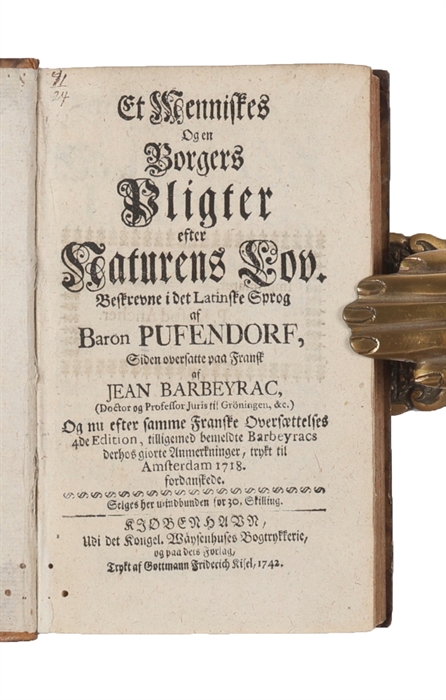 91
24
Et Menniskes
Og en
Borgers
Pligter
efter
Naturens Lov.
Beskrevne i det Latinske Sprog
af
Baron PUFENDORF,
Siden oversatte paa Fransk
af
JEAN BARBEYRAC,
(Doctor og Professor Juris til Gröningen, &c.)
Og nu efter samme Franske Oversættelses
4de Edition, tilligemed bemeldte Barbeyracs
derhos giorte Anmerkninger, trykt til
Amsterdam 1718.
fordanskede.
Selges her uindbunden for 30. Skilling.
KIØBENHAVN,
Udi det Kongel. Wäysenhuses Bogtrykkerie,
og paa dets Forlag,
Trykt af Gottmann Friderich Kisel, 1742.